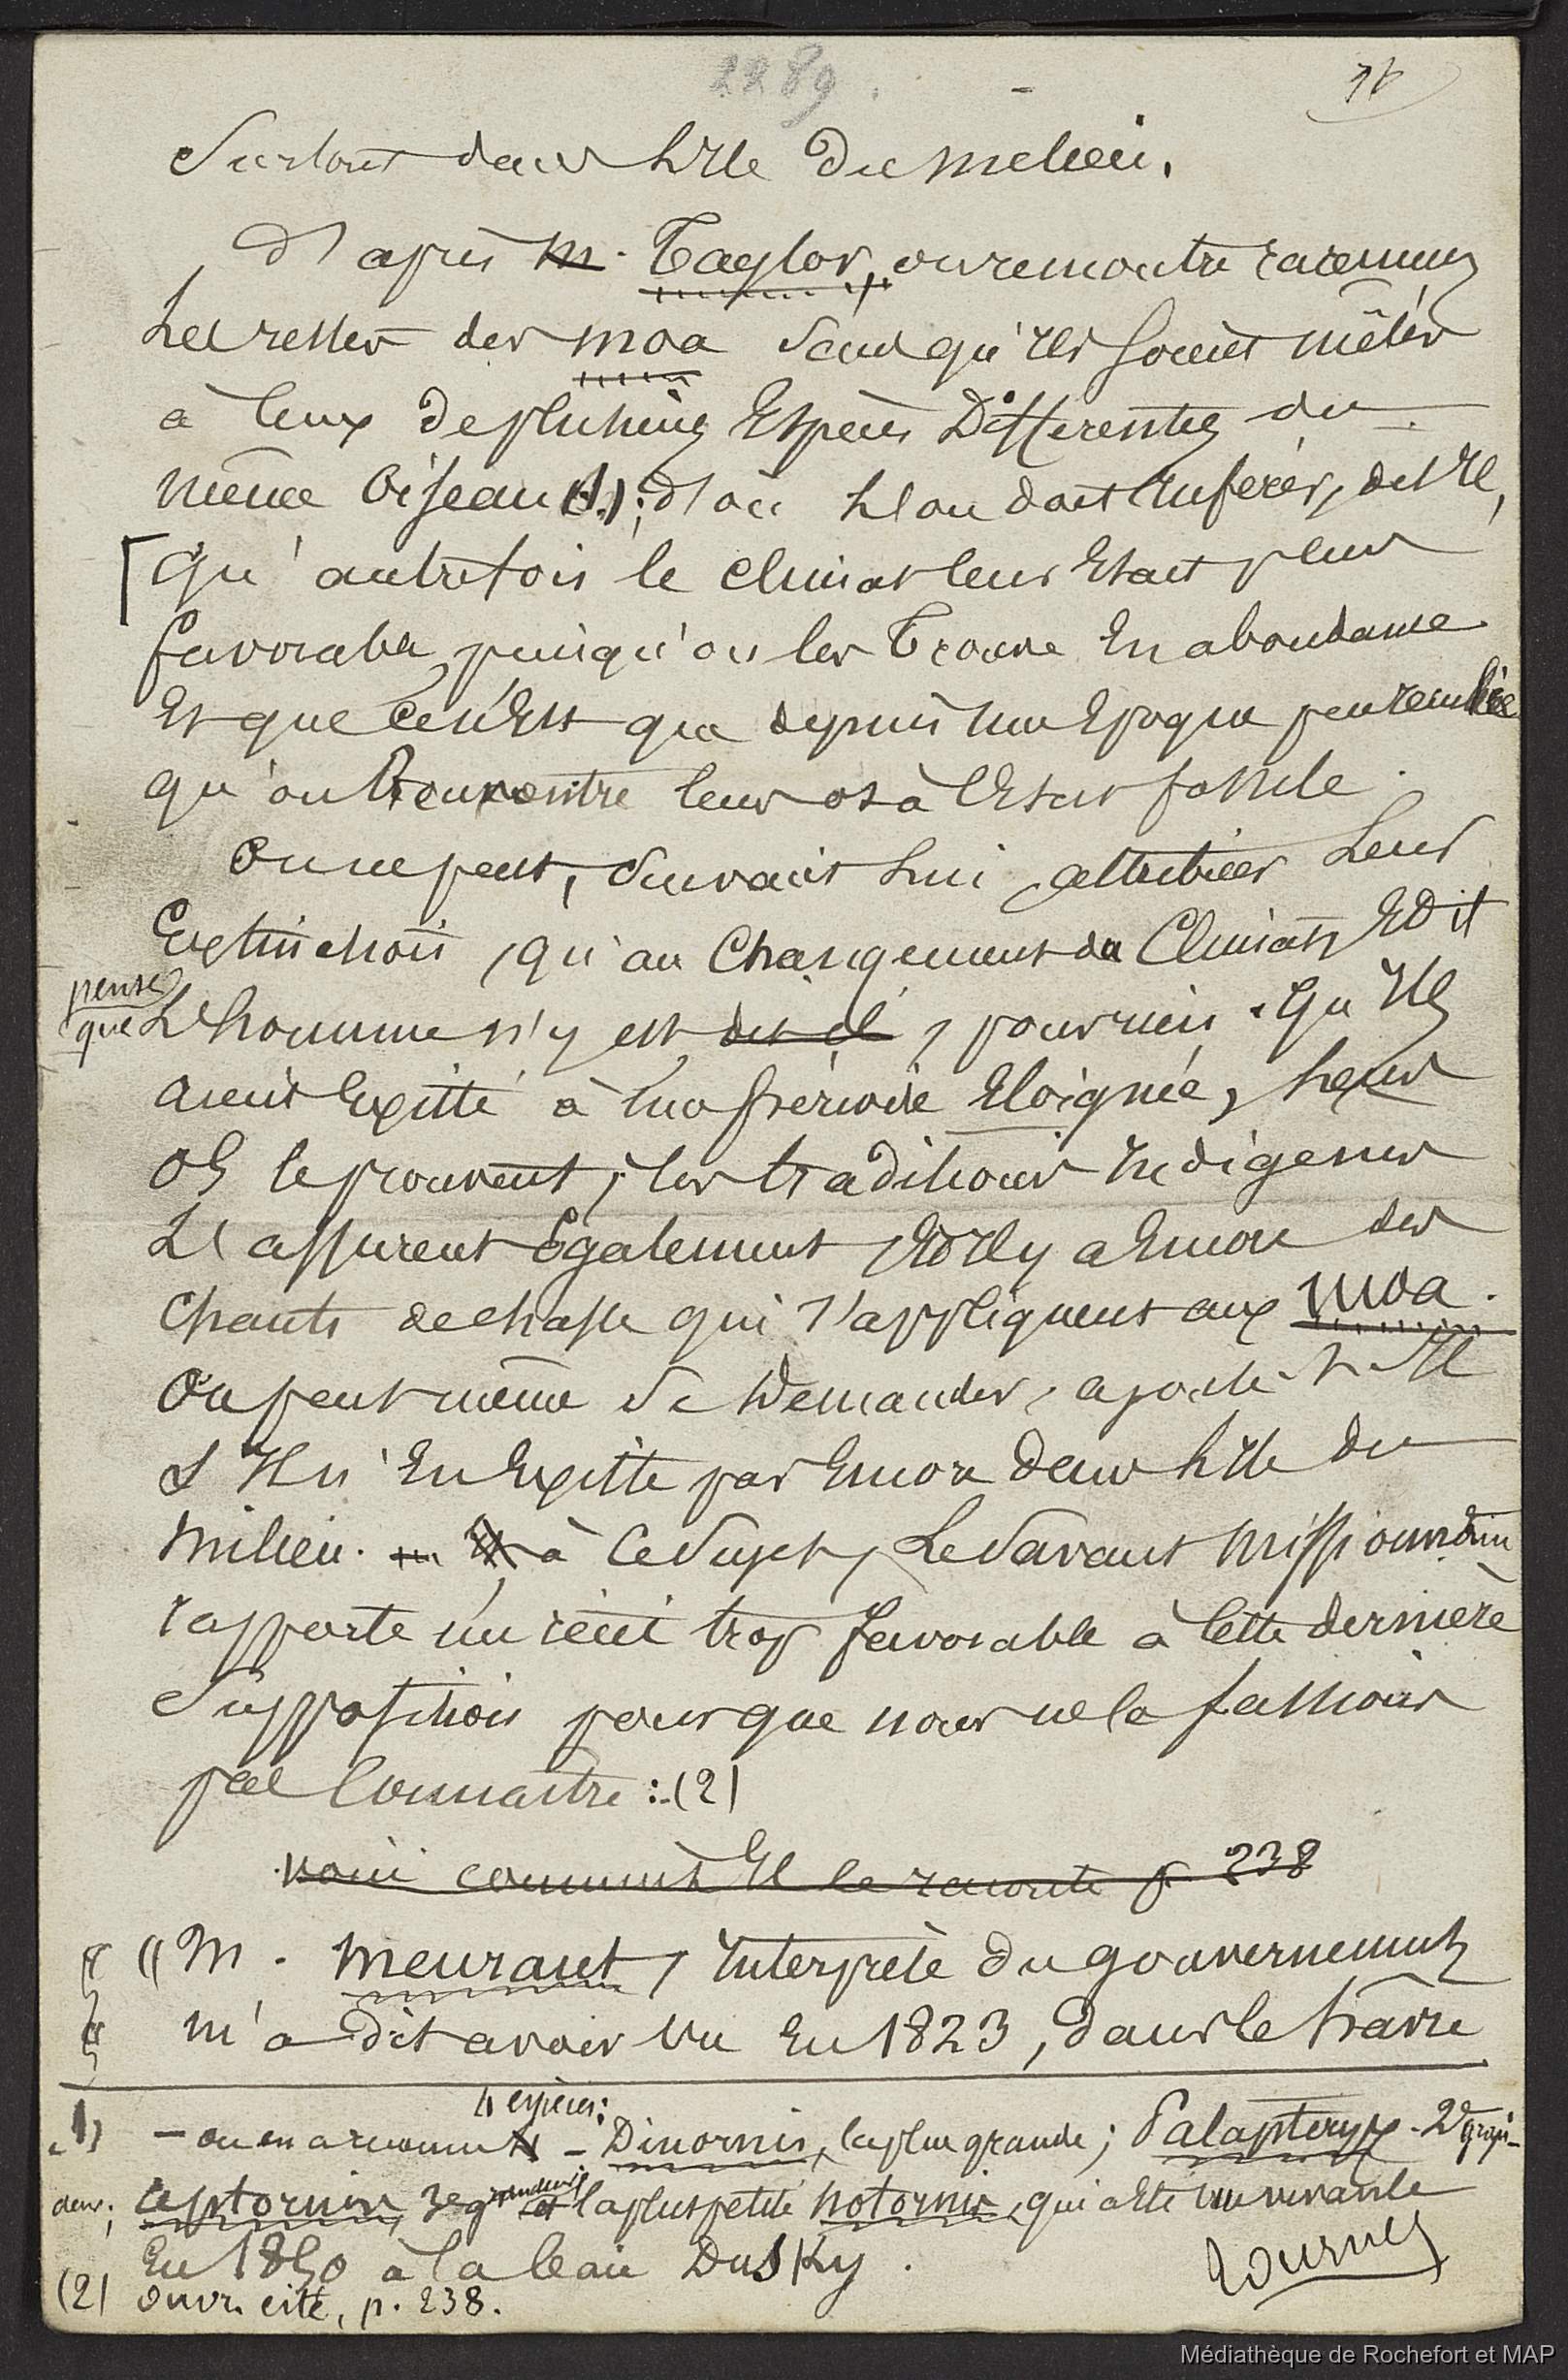 2289.
surtout dans l'Ile du milieu.
D'après M. Taylor, on remontre rarement
les restes des moa sans qu'ils soient mêlés
à ceux de plusieurs Espèces Différentes du
même Oiseau (1); d'où l'on doit Inférer, dit Il,
qu'autrefois le climat leur Etait plus
favorable puisqu'on les Trouve En abondance
Et que ce n'Est que depuis une Epoque peu reculée
qu'on Rencontre leurs os à l'Etat fossile.
On ne peut, suivant lui attribuer Leur
Extinction, qu'au Changement de Climat, Et Il
pense
que L'homme n'y est dit il, pour rien. Qu'Ils
aient Existé à une période Eloignée, Leurs
os le prouvent; les traditions Indigènes
L'assurent Egalement, Et Il y a Encore des
Chants de chasse qui s'appliquent aux moa.
On peut même se Demander, ajoute-t-Il
s'Il n'En Existe pas Encore dans l'Ile du
milieu. à ce sujet, Le savant missionnaire
rapporte un récit trop favorable à cette dernière
supposition pour que nous ne le fassions
pas Connaitre: (2)
voici comment Il le raconte p. 238
"M. Meurant, Interprète du gouvernement
m'a Dit avoir vu En 1823, dans le hâvre
(1) — on en a reconnu 4 espèces: - Dinornis, la plus grande; Palapteryx - 2e gran-
deur; aptornis, 3e grandeur et la plus petite notornis, qui a Eté vue vivante
En 1850 à la baie Dusky.
(2) Ouvr. cité, p. 238.
Tournez
Médiathèque de Rochefort et MAP